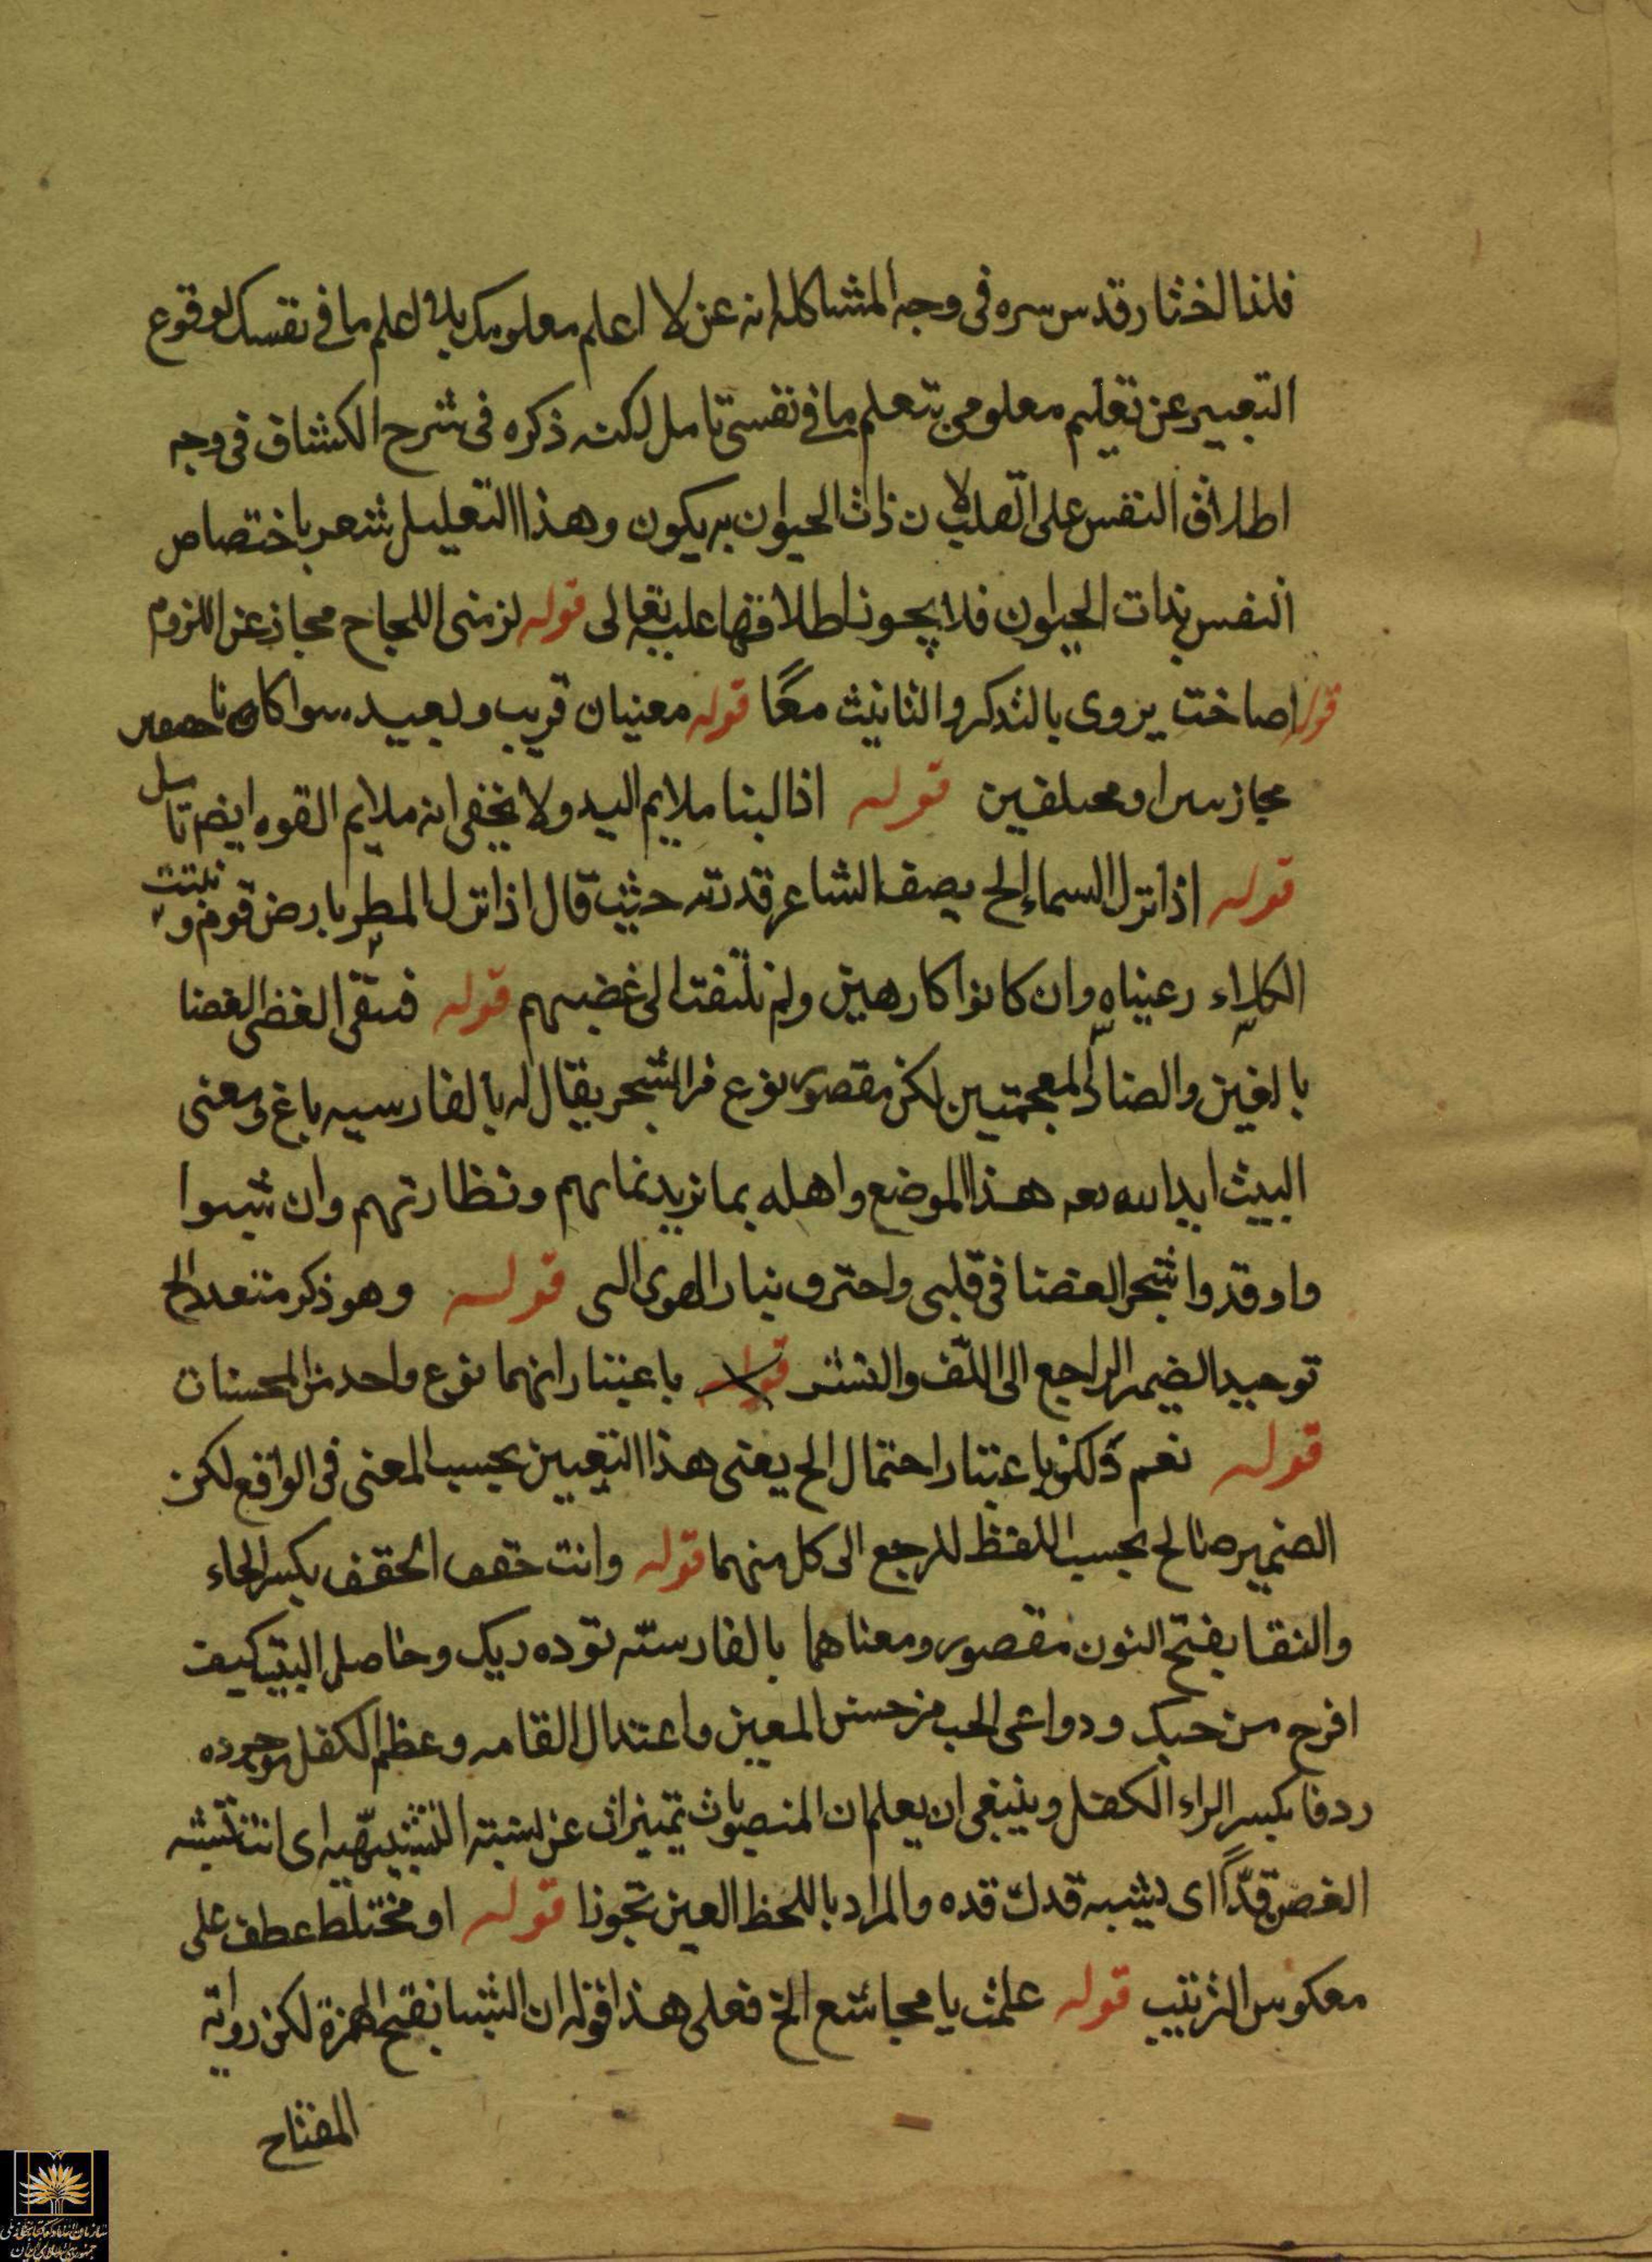 فلذا اختار قدس سره فى وجه المشاكلة انه عن لا اعلم معلومك بلا اعلم ما فى نفسك لوقوع
التعبير عن تعليم معلومى بتعلم ما فى نفسى تامل لكنه ذكره فى شرح الكشاف فى وجه
اطلاق النفس على القلب لان ذات الحيوان به يكون وهذا التعليل يشعر باختصاص
النفس بذات الحيوان فلا يجوز اطلاقها عليه تعالى قوله لزمنى اللجاج مجاز عن اللزوم
قوله اصاخت يروى بالتذكير والتانيث معًا قوله معنيان قريب وبعيد سوا كانا
مجازين او مختلفين قوله اذ البنا ملايم اليد ولا يخفى انه ملايم القوه ايضا تامل
قوله اذا نزل السماء الخ يصف الشاعر قدرته حيث قال اذا نزل المطر بارض قوم ونبتت
الكلاء رعيناه وان كانوا كارهين ولم نلتفت الى غضبهم قوله فسقى الغضى الغضا
بالغين والضاد المعجمتين لكن مقصور نوع من الشجر يقال له بالفارسيه باغ ومعنى
البيت ايد الله تعه هذا الموضع واهله بما يزيد نمائهم ونظارتهم وان شبوا
واوقدوا شجر الغضا فى قلبى واحترق بنار الهوى التى قوله وهو ذكر متعدد الخ
توحيد الضمير الراجع الى اللف والنشر قوله باعتبار انهما نوع واحد من المحسنات
قوله نعم ولكن باعتبار احتمال الخ يعنى هذا التعيين بحسب المعنى فى الواقع لكن
الضمير صالح بحسب اللفظ للرجع الى كل منهما قوله وانت حقف الحقف بكسر الحاء
والنقا بفتح النون مقصور ومعناهما بالفارسته توده ريك وحاصل البيت كيف
افرح من حبك ودواعى الحب من حسن العين واعتدال القامه وعظم الكفل موجوده
ردفا بكسر الراء الكفل وينبغى ان يعلم ان المنصوبات تميزات عن نسبته التشبيهيه اى انت تشبه
الغصن قدًّا اى يشبه قدك قده والمراد باللحظ العين تجوزا قوله او مختلط عطف على
معكوس الترتيب قوله علمت يا مجاشع الخ فعلى هذا قوله ان الشباب بفتح الهمزة لكن رواية
المفتاح